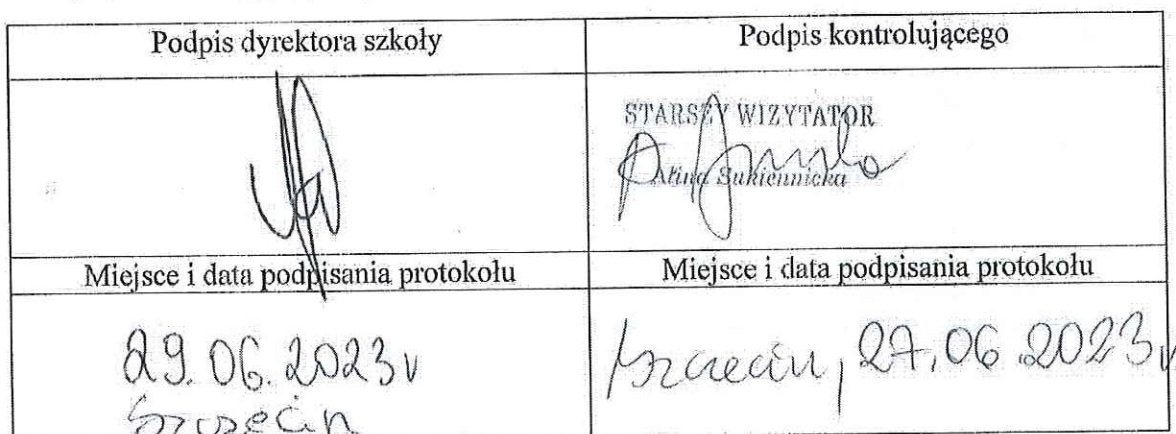 Podpis dyrektora szkoły
Podpis kontrolującego
STARSZY WIZYTATOR
Alina Sukiennicka
Miejsce i data podpisania protokołu
Miejsce i data podpisania protokołu
29.06.2023r
Szczecin
Szczecin, 27.06.2023r